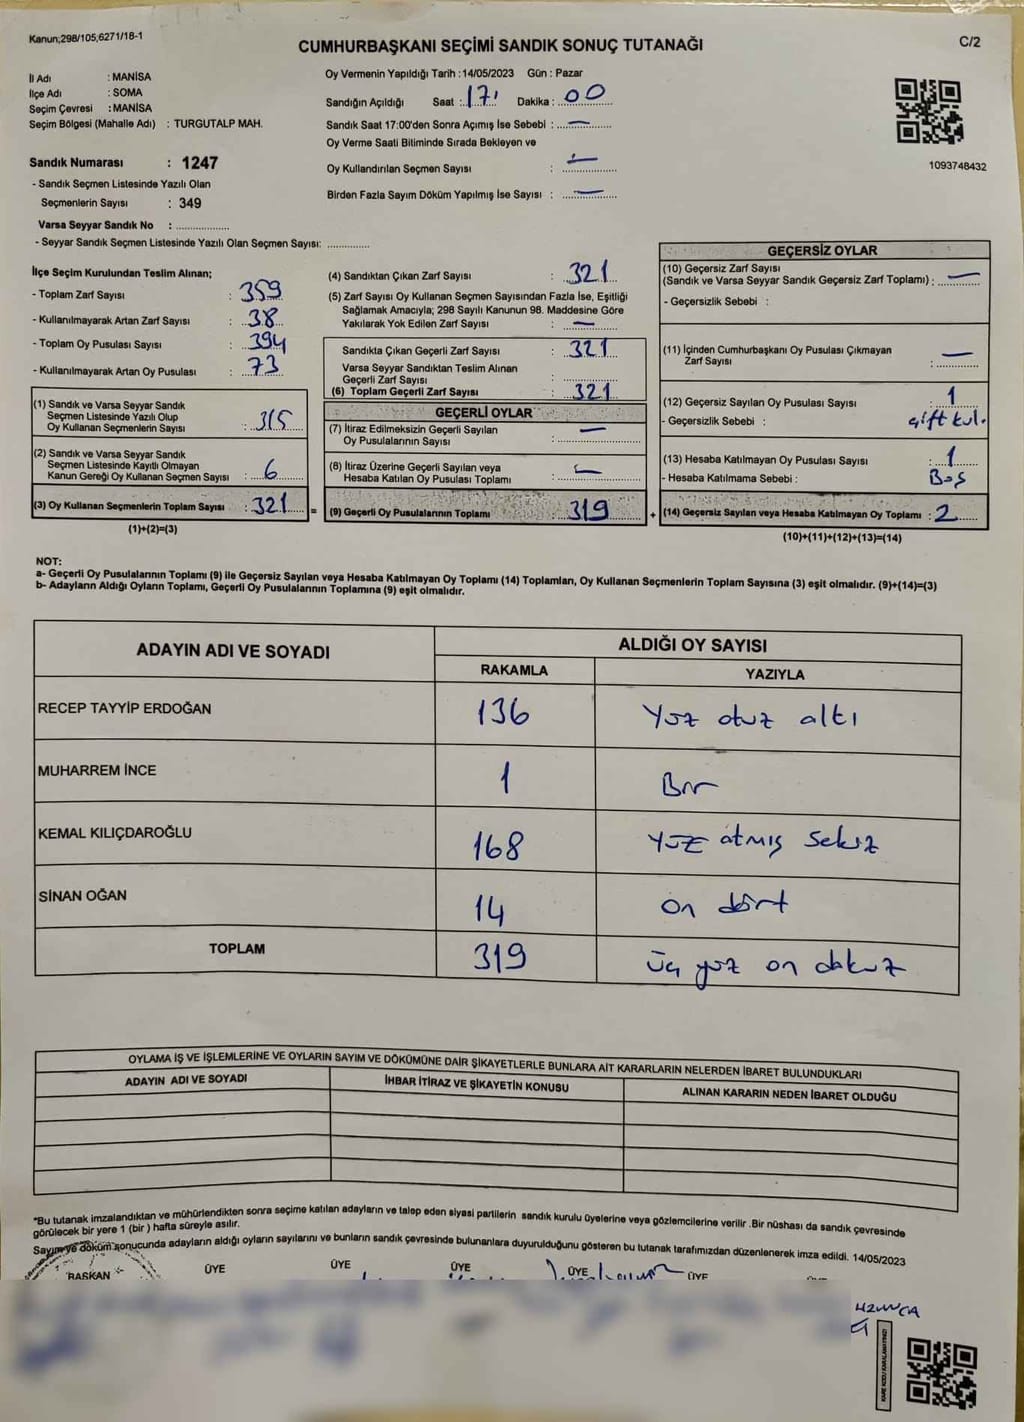 Kanun;298/105,6271/18-1
CUMHURBAŞKANI SEÇİMİ SANDIK SONUÇ TUTANAĞI
C/2
İl Adı : MANİSA
İlçe Adı : SOMA
Seçim Çevresi : MANİSA
Seçim Bölgesi (Mahalle Adı) : TURGUTALP MAH.
Oy Vermenin Yapıldığı Tarih : 14/05/2023 Gün : Pazar
Sandığın Açıldığı Saat : 17 Dakika : 00
Sandık Saat 17:00'den Sonra Açımış İse Sebebi : —
Oy Verme Saati Bitiminde Sırada Bekleyen ve
Oy Kullandırılan Seçmen Sayısı : —
Birden Fazla Sayım Döküm Yapılmış İse Sayısı : —
1093748432
Sandık Numarası : 1247
- Sandık Seçmen Listesinde Yazılı Olan
Seçmenlerin Sayısı : 349
Varsa Seyyar Sandık No : ....................
- Seyyar Sandık Seçmen Listesinde Yazılı Olan Seçmen Sayısı: ...............
İlçe Seçim Kurulundan Teslim Alınan;
- Toplam Zarf Sayısı : 359
- Kullanılmayarak Artan Zarf Sayısı : 38
- Toplam Oy Pusulası Sayısı : 394
- Kullanılmayarak Artan Oy Pusulası : 73
(1) Sandık ve Varsa Seyyar Sandık
Seçmen Listesinde Yazılı Olup
Oy Kullanan Seçmenlerin Sayısı : 315
(2) Sandık ve Varsa Seyyar Sandık
Seçmen Listesinde Kayıtlı Olmayan
Kanun Gereği Oy Kullanan Seçmen Sayısı : 6
(3) Oy Kullanan Seçmenlerin Toplam Sayısı : 321 =
(1)+(2)=(3)
(4) Sandıktan Çıkan Zarf Sayısı : 321
(5) Zarf Sayısı Oy Kullanan Seçmen Sayısından Fazla İse, Eşitliği
Sağlamak Amacıyla; 298 Sayılı Kanunun 98. Maddesine Göre
Yakılarak Yok Edilen Zarf Sayısı : —
Sandıkta Çıkan Geçerli Zarf Sayısı : 321
Varsa Seyyar Sandıktan Teslim Alınan
Geçerli Zarf Sayısı : ....................
(6) Toplam Geçerli Zarf Sayısı : 321
GEÇERLİ OYLAR
(7) İtiraz Edilmeksizin Geçerli Sayılan
Oy Pusulalarının Sayısı : —
(8) İtiraz Üzerine Geçerli Sayılan veya
Hesaba Katılan Oy Pusulası Toplamı : —
(9) Geçerli Oy Pusulalarının Toplamı : 319 +
GEÇERSİZ OYLAR
(10) Geçersiz Zarf Sayısı
(Sandık ve Varsa Seyyar Sandık Geçersiz Zarf Toplamı) : —
- Geçersizlik Sebebi :
(11) İçinden Cumhurbaşkanı Oy Pusulası Çıkmayan
Zarf Sayısı : —
(12) Geçersiz Sayılan Oy Pusulası Sayısı : 1
- Geçersizlik Sebebi : çift kul.
(13) Hesaba Katılmayan Oy Pusulası Sayısı : 1
- Hesaba Katılmama Sebebi : Boş
(14) Geçersiz Sayılan veya Hesaba Katılmayan Oy Toplamı : 2
(10)+(11)+(12)+(13)=(14)
NOT:
a- Geçerli Oy Pusulalarının Toplamı (9) ile Geçersiz Sayılan veya Hesaba Katılmayan Oy Toplamı (14) Toplamları, Oy Kullanan Seçmenlerin Toplam Sayısına (3) eşit olmalıdır. (9)+(14)=(3)
b- Adayların Aldığı Oyların Toplamı, Geçerli Oy Pusulalarının Toplamına (9) eşit olmalıdır.
ADAYIN ADI VE SOYADI
ALDIĞI OY SAYISI
RAKAMLA YAZIYLA
RECEP TAYYİP ERDOĞAN 136 Yüz otuz altı
MUHARREM İNCE 1 Bir
KEMAL KILIÇDAROĞLU 168 Yüz atmış sekiz
SİNAN OĞAN 14 on dört
TOPLAM 319 üç yüz on dokuz
OYLAMA İŞ VE İŞLEMLERİNE VE OYLARIN SAYIM VE DÖKÜMÜNE DAİR ŞİKAYETLERLE BUNLARA AİT KARARLARIN NELERDEN İBARET BULUNDUKLARI
ADAYIN ADI VE SOYADI İHBAR İTİRAZ VE ŞİKAYETİN KONUSU ALINAN KARARIN NEDEN İBARET OLDUĞU
*Bu tutanak imzalandıktan ve mühürlendikten sonra seçime katılan adayların ve talep eden siyasi partilerin sandık kurulu üyelerine veya gözlemcilerine verilir .Bir nüshası da sandık çevresinde
görülecek bir yere 1 (bir ) hafta süreyle asılır.
Sayım ve döküm sonucunda adayların aldığı oyların sayılarını ve bunların sandık çevresinde bulunanlara duyurulduğunu gösteren bu tutanak tarafımızdan düzenlenerek imza edildi. 14/05/2023
BAŞKAN ÜYE ÜYE ÜYE ÜYE ÜYE